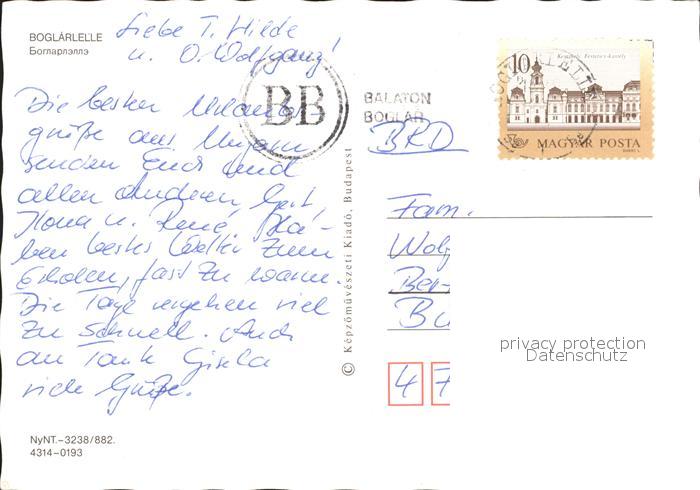 BOGLÁRLELLE
Богларлэллэ
Liebe T. Hilde
u. O. Wolfgang!
Die besten Urlaubs-
grüße aus Ungarn
senden Euch und
allen Anderen Gert,
Ilona u. René. Ha-
ben bestes Wetter zum
Erholen, fast zu warm.
Die Tage vergehen viel
zu schnell. Auch
an Tank Gisela
viele Grüße.
NyNT.-3238/882.
4314-0193
© Képzőművészeti Kiadó, Budapest
BB
BALATON
BOGLÁR
10
Keszthely, Festetics-kastély
MAGYAR POSTA
BRD
Fam.
Wolf
Ber
Bu
4 7
privacy protection
Datenschutz